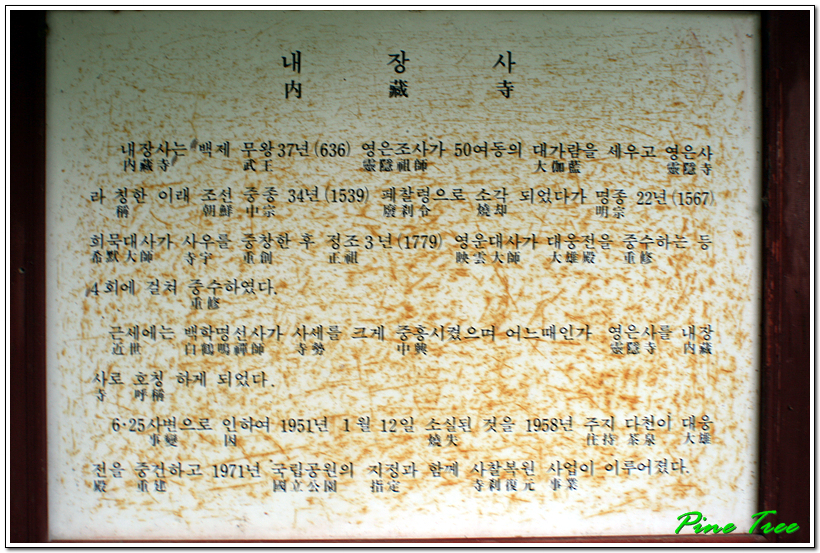 내 장 사
內 藏 寺
내장사는 백제 무왕37년(636) 영은조사가 50여동의 대가람을 세우고 영은사
內藏寺 武王 靈隱祖師 大伽藍 靈隱寺
라 칭한 이래 조선 중종 34년(1539) 폐찰령으로 소각 되었다가 명종 22년(1567)
稱 朝鮮 中宗 廢刹令 燒却 明宗
희묵대사가 사우를 중창한 후 정조3년(1779) 영운대사가 대웅전을 중수하는 등
希默大師 寺宇 重創 正祖 映雲大師 大雄殿 重修
4회에 걸쳐 중수하였다.
重修
근세에는 백학명선사가 사세를 크게 중흥시켰으며 어느때인가 영은사를 내장
近世 白鶴鳴禪師 寺勢 中興 靈隱寺 內藏
사로 호칭 하게 되었다.
寺 呼稱
6·25사변으로 인하여 1951년 1월 12일 소실된 것을 1958년 주지 다천이 대웅
事變 因 燒失 住持 茶泉 大雄
전을 중건하고 1971년 국립공원의 지정과 함께 사찰복원 사업이 이루어졌다.
殿 重建 國立公園 指定 寺刹復元 事業
Pine Tree